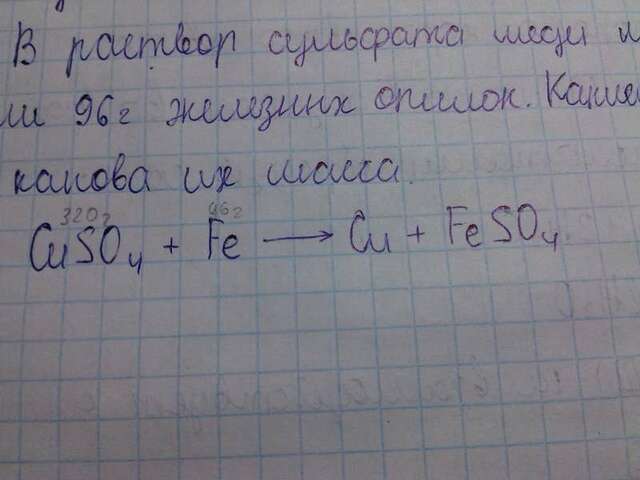 В раствор сульфата меди м
ли 96г железних опилок. Какие
какова их масса.
320г 96г
CuSO4 + Fe → Cu + FeSO4.